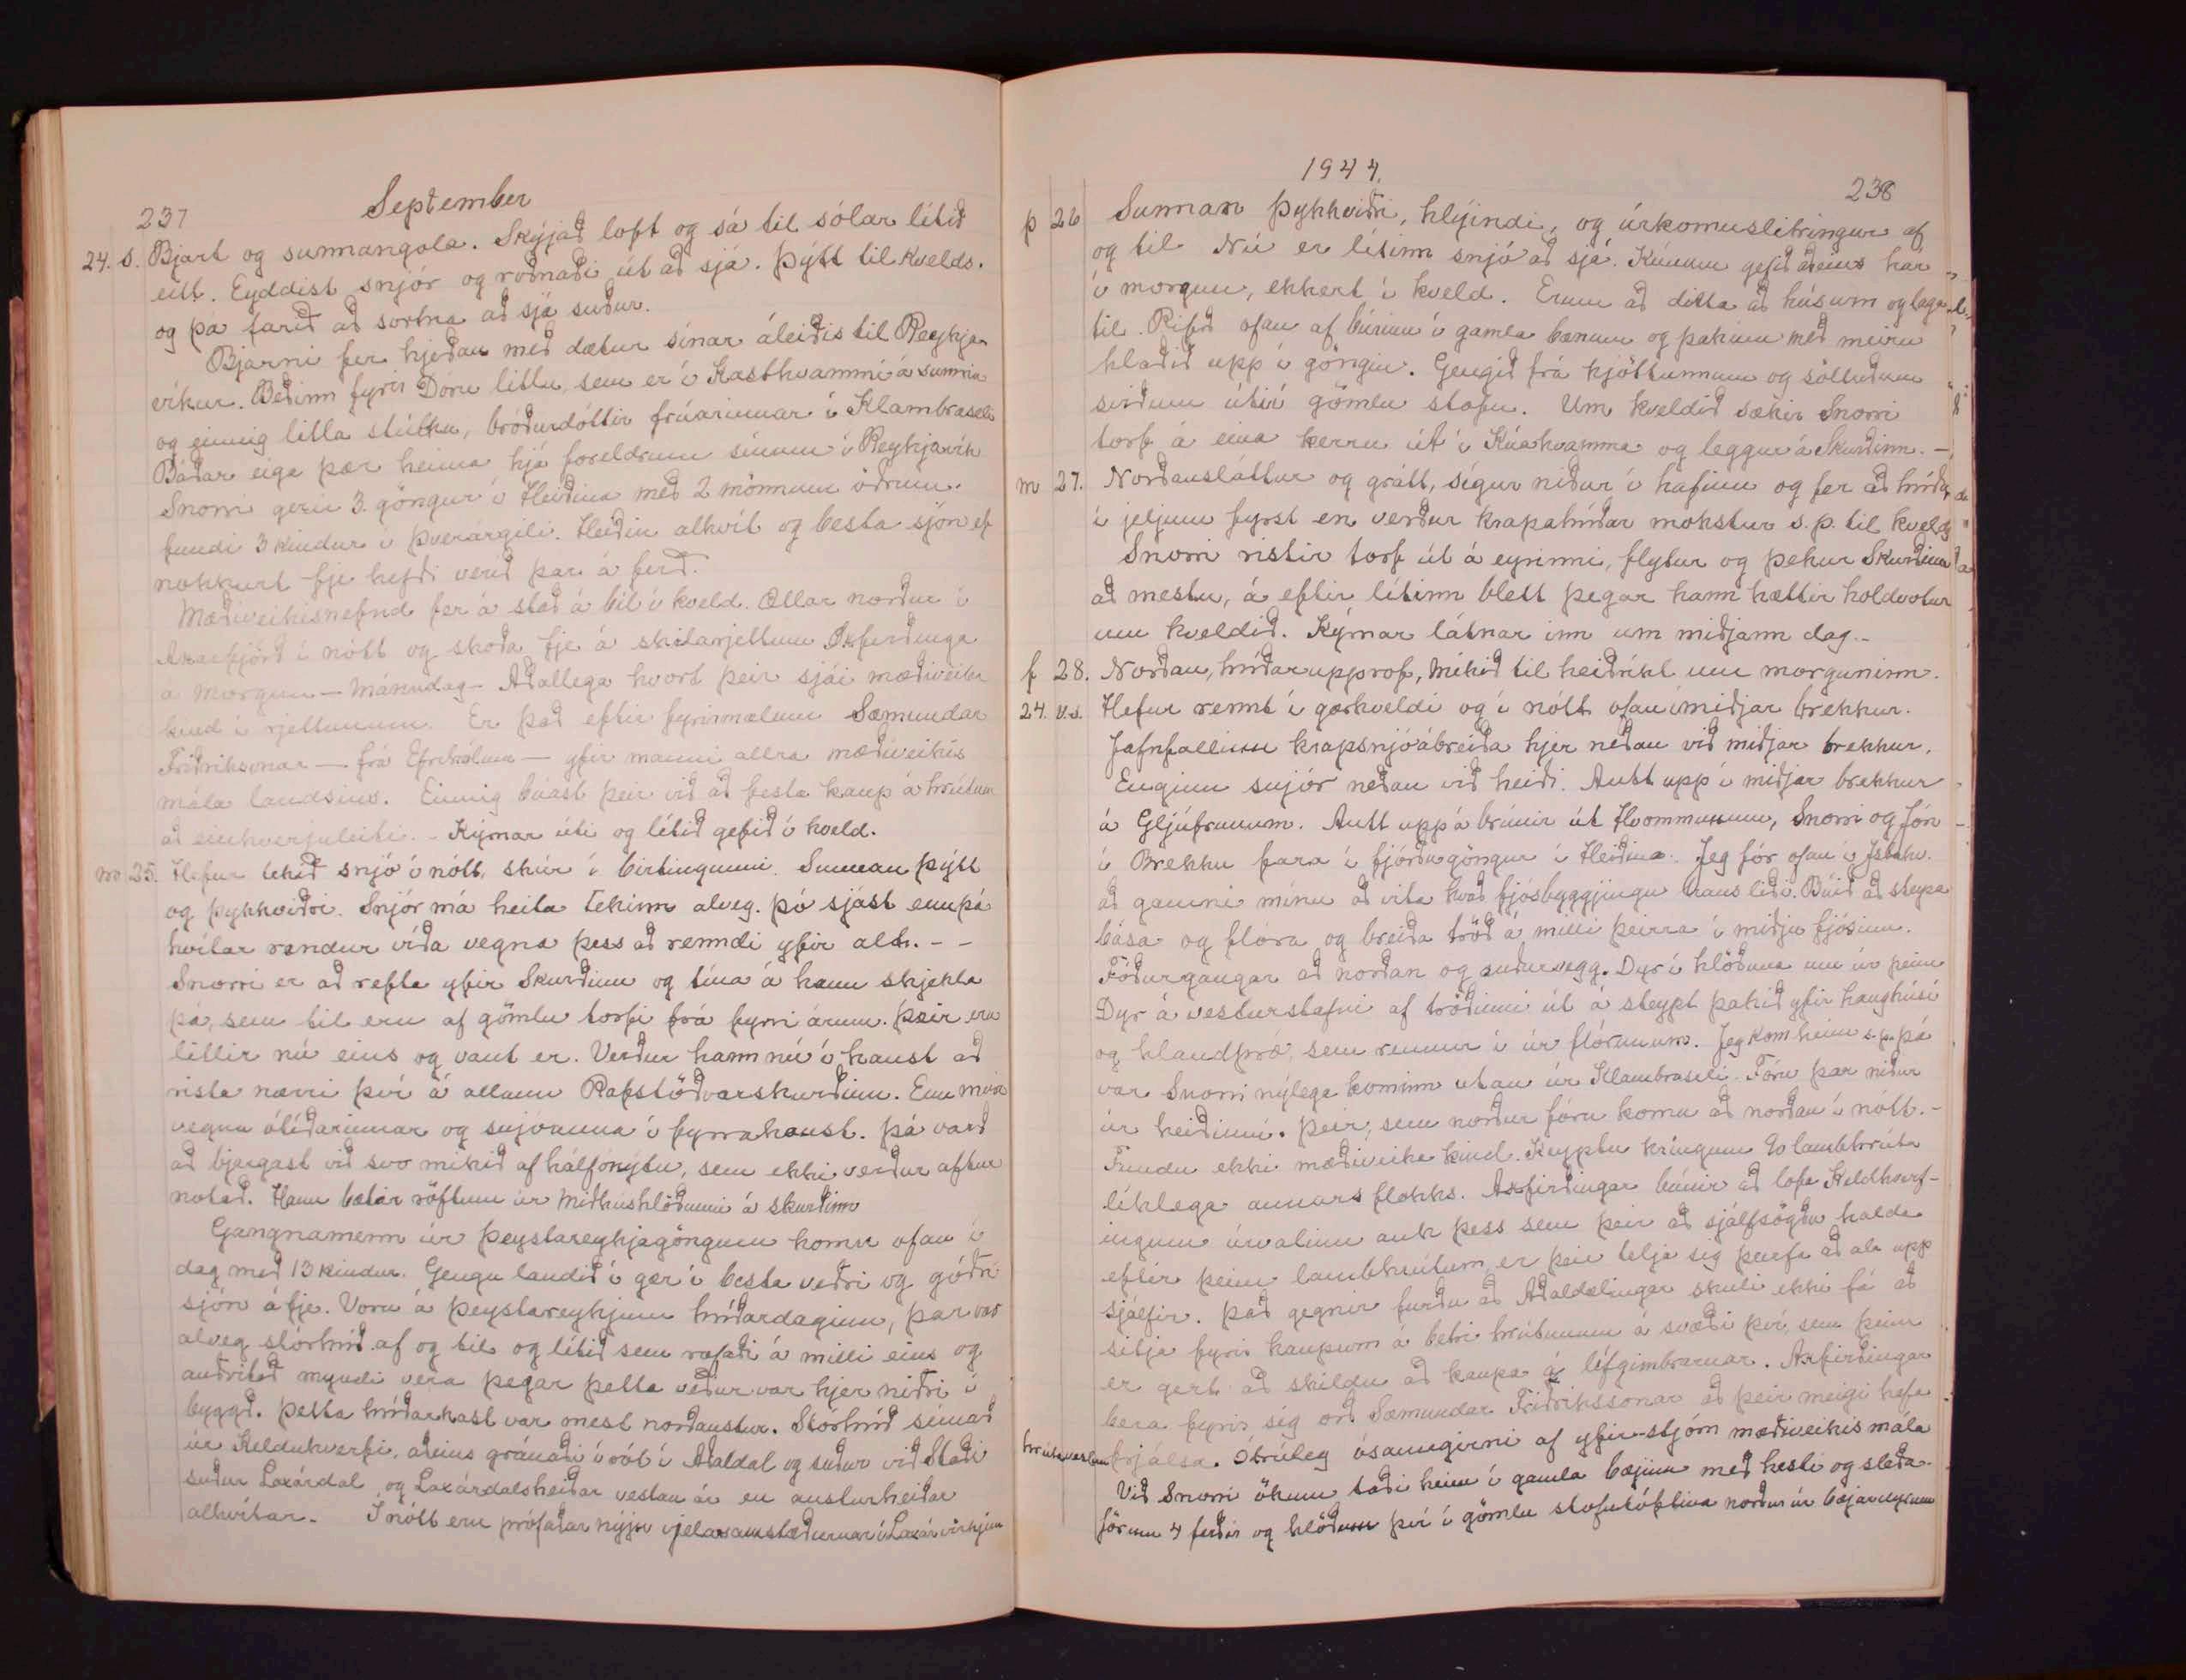 237
September
24. s. Bjart og sunnangola. Skýjað loft og sá til sólar lítið
eitt. Eyddist snjór og roðnaði út að sjá. Þýtt til kvelds.
og þá farið að sortna að sjá suður.
Bjarni fer hjeðan með dætur sínar áleiðis til Reykja-
víkur. Beðinn fyrir Dóru litlu, sem er í Kasthvammi á sumrin
og einnig litla stúlku, bróðurdóttir frúarinnar í Klambraseli
Báðar eiga þær heima hjá foreldrum sínum í Reykjavík
Snorri gerir 3. göngur í Heiðina með 2 mönnum öðrum.
fundi 3 kindur í Þverárgili. Heiðin alhvít og besta sjón ef
nokkurt fje hefði verið þar á ferð.
Mæðiveikisnefnd fer á stað á bíl í kveld. Ætlar norður í
Axarfjörð í nótt og skoða fje á skilarjettum Öxfirðinga
á morgun - Mánudag - Aðallega hvort þeir sjái mæðiveika
kind í rjettunum. Er það eftir fyrirmælum Sæmundar
Friðrikssonar - frá Efrihólum - yfir manni allra mæðiveikis
mála landsins. Einnig búast þeir við að festa kaup á hrútum
að einhverjuleiti. - Kýrnar úti og lítið gefið í kveld.
m 25. Hefur tekið snjó í nótt, skúr í birtingunni. Sunnan þýtt
og þykkviðri. Snjór má heita tekinn alveg. þó sjást ennþá
hvítar rendur víða vegna þess að renndi yfir alt. - -
Snorri er að refta yfir Skurðinn og tína á hann skjekla
þá, sem til eru af gömlu torfi frá fyrri árum. Þeir eru
litlir nú eins og vant er. Verður hann nú í haust að
rista nærri því á allann Rafstöðvarskurðinn. Enn meir
vegna ótíðarinnar og snjóanna í fyrrahaust. þá varð
að bjargast við svo mikið af hálfónýtu, sem ekki verður aftur
notað. Hann bætir röftum úr Miðhúshlöðunni á skurðinn
Gangnamenn úr Þeystareykjagöngum komu ofan í
dag með 13 kindur. Gengu landið í gær í besta veðri og góðri
sjón á fje. Voru á Þeystareykjum hríðardaginn, þar var
alveg stórhríð af og til og lítið sem rofaði á milli eins og
auðvitað myndi vera þegar þetta veður var hjer niðri í
byggð. Þetta hríðarkast var mest norðaustur. Stórhríð símað
úr Kelduhverfi, aðeins gránaði í rót í Aðaldal og suður við Staði
suður Laxárdal, og Laxárdalsheiðar vestan ár en austurheiðar
alhvítar. Í nótt eru prófaðar nýju vjelasamstæðurnar í Laxárvirkjun
1944.
238
þ 26 Sunnan þykkviðri, hlýindi, og úrkomuslitringur af
og til Nú er lítinn snjó að sjá. Kúnum gefið aðeins hár
í morgun, ekkert í kveld. Erum að ditta að húsum og laga
til. Rifið ofan af búrinu í gamla bænum og þakinu með meiru
hlaðið upp í göngin. Gengið frá kjöttunnum og söltuðum
sviðum útií gömlu stofu. Um kveldið sækir Snorri
torf á eina kerru út í Kúahvamma og leggur á Skurðinn. -
m 27. Norðansláttur og grátt, sígur niður í hafinu og fer að hríða
í jeljum fyrst en verður krapahríðar mokstur s.p. til kvelds
Snorri ristir torf út á eyrinni, flytur og þekur Skurðinn
að mestu, á eftir lítinn blett þegar hann hættir holdvotur
um kveldið. Kýrnar látnar inn um miðjann dag.-
f 28. Norðan, hríðarupprof, mikið til heiðríkt um morguninn.
24. v.s. Hefur rennt í gærkveldi og í nótt ofaní miðjar brekkur.
Jafnfallinn krapsnjóábreiða hjer neðan við miðjar brekkur.
Enginn snjór neðan við heiði. Autt upp í miðjar brekkur
á Gljúfrunum. Autt uppá brúnir út Hvommunum, Snorri og Jón
í Brekku fara í fjórðu göngur í Heiðina. Jeg fór ofan í Ystahv.
að gamni mínu að vita hvað fjósbyggingu hans liði. Búið að steypa
bása og flóra og breiða tröð á milli þeirra í miðju fjósinu.
Föðurgangar að norðan og suðurvegg. Dyr í hlöðuna um úr þeim
Dyr á vesturstafni af tröðinni út á steypt þakið yfir haughúsi
og hlandþró, sem rennur í úr flórunum. Jeg kom heim s.p. þá
var Snorri nýlega kominn utan úr Klambraseli. Fóru þar niður
úr heiðinni. Þeir, sem norður fóru komu að norðan í nótt. -
Fundu ekki mæðiveika kind. Keyptu kringum 90 lambhrúta
líklega annars flokks. Axfirðingar búnir að lofa Keldhverf-
ingum úrvalinu auk þess sem þeir að sjálfsögðu halda
eftir þeim lambhrútum, er þeir telja sig þurfa að ala upp
sjálfir. Það gegnir furðu að Aðaldælingar skuli ekki fá að
sitja fyrir kaupum á betri hrútunum á svæði því, sem þeim
er gert að skildu að kaupa á lífgimbrarnar. Axfirðingar
bera fyrir sig orð Sæmundar Friðrikssonar að þeir meigi hafa
hrútaverslun frjálsa. Ótrúleg ósanngirni af yfir-stjórn mæðiveikis mála
Við Snorri ökum taði heim í gamla bæjinn með hesti og sleða.
förum 4 ferðir og hlöðum því í gömlu stofutóftina norður úr bæjardyrum